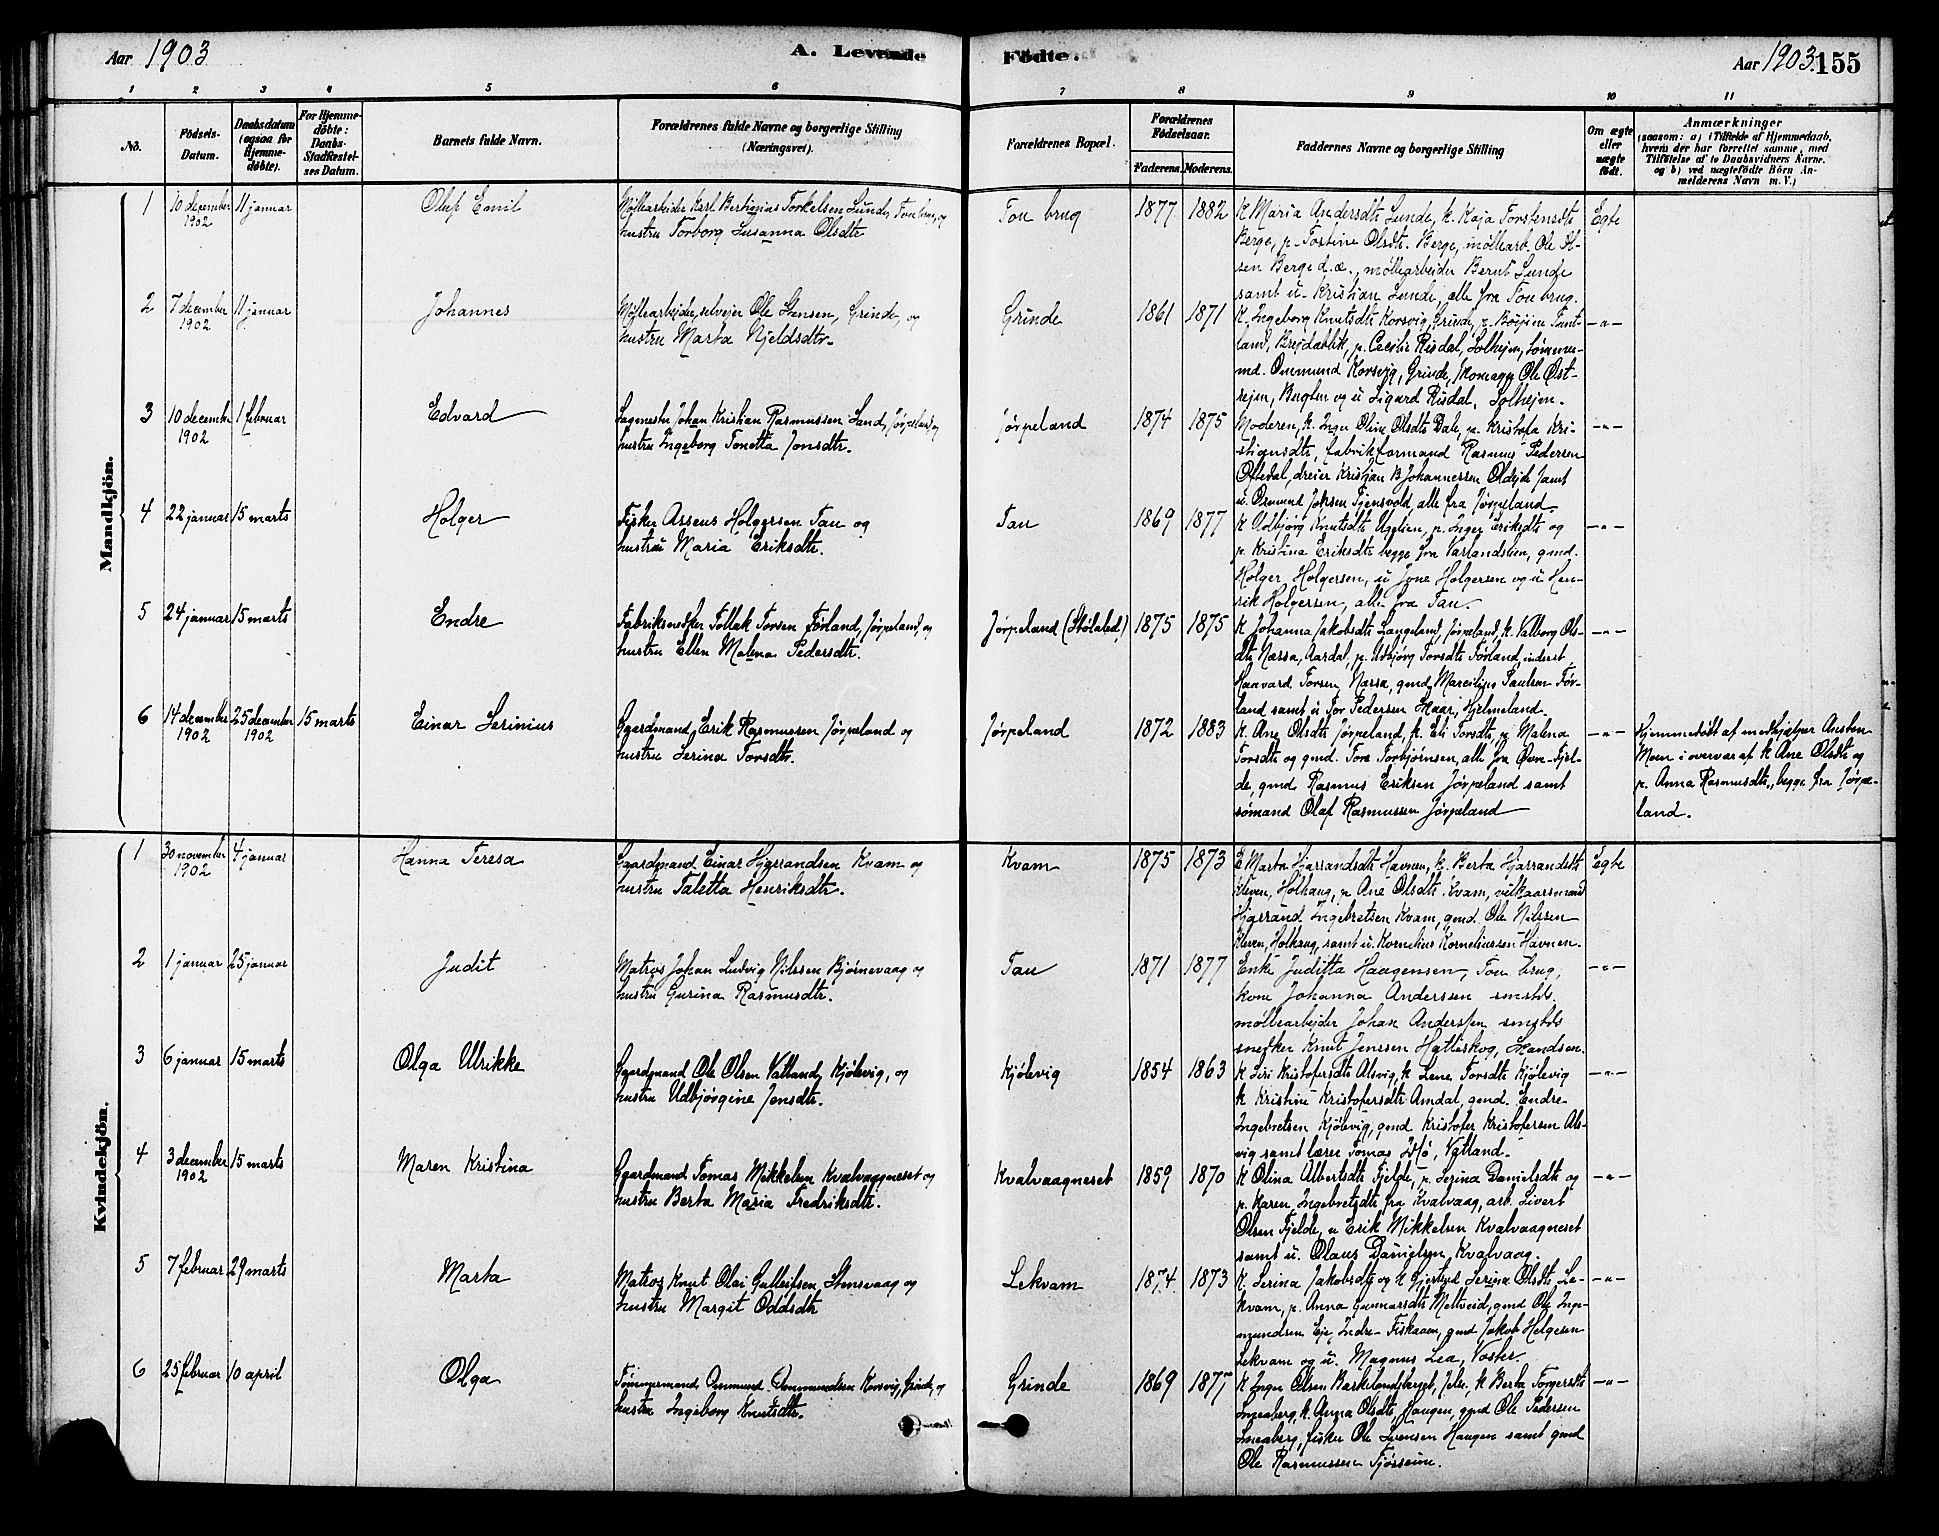 Aar 1903
A. Levende
Fødte.
Aar 1903. 155
1 2 3 4 5 6 7 8 9 10 11
No.
Fødsels-
Datum.
Daabsdatum
(ogsaa for
Hjemme-
døbte).
For Hjemme-
døbte:
Daabs-
Stadfæstel-
ses Datum.
Barnets fulde Navn.
Forældrenes fulde Navne og borgerlige Stilling
(Næringsvei).
Forældrenes Bopæl.
Forældrenes
Fødselsaar.
Faderens. Moderens.
Faddernes Navne og borgerlige Stilling
Om ægte
eller
uægte
født.
Anmærkninger
(saasom: a) i Tilfælde af Hjemmedaab,
hvem der har forrettet samme, med
Tilføielse af to Daabsvidners Navne,
og b) ved uægtefødte Börn An-
melderens Navn m. V.)
Mandkjön.
1
10 december
1902
11 januar
Olaf Emil
Møllearbeider Karl Bertinius Torkelsen Lunde, Tou brug, og
hustru Torborg Susanna Olsdtr
Tou brug
1877 1882
K Maria Andersdtr Lunde, k. Kaja Torstensdtr
Berge, p. Tostine Olsdtr. Berge, møllearb. Ole Ol-
sen Berge d.æ., møllearbeider Bernt Lunde
samt u. Kristian Lunde, alle fra Tou brug.
Egte
2
7 december
1902
11 januar
Johannes
Møllearbeider, selveier Ole Stensen, Grinde, og
hustru Marta Njeldsdtr.
Grinde
1861 1871
K. Ingeborg Knutsdtr Korsvig, Grinde, p.
land, Brejdablik, p. Cecilie Risdal, Solhejm, tømmer-
md. Ommund Korsvig, Grinde, Ole Øst-
rejm, og u Sigurd Risdal, Solhejm.
-"-
3
10 december
1902
1 februar
Edvard
Sagmester Johan Kristian Rasmussen Sand, Jørpeland, og
hustru Ingeborg Tonetta Jonsdtr.
Jørpeland
1874 1875
Moderen, k. Inger Oline Olsdtr Dale, p. Kristofa Kri-
stiansdtr, fabrikformand Rasmus Pedersen
Oftedal, dreier Kristian B Johannessen samt
u. Osmund Joksen Tjensvold, alle fra Jørpeland
-"-
4
22 januar
15 marts
Holger
Fisker Asseus Holgersen Tau og
hustru Maria Eriksdtr.
Tau
1869 1877
K Udbjørg Knutsdtr Ugelien, p. Inger Eriksdtr og
p. Kristina Eriksdtr begge fra Varlandslien, gmd.
Holger Holgersen, u Jone Holgersen og u Hen-
rik Holgersen, alle fra Tau.
-"-
5
24 januar
15 marts
Endre
Fabriksnedker Tollak Torsen Førland, Jørpeland, og
hustru Ellen Malena Pedersdtr.
Jørpeland (Stølaled)
1875 1875
K Johanna Jakobsdtr Langeland, Jørpeland, k. Valborg Ols-
dtr Nessa, Aardal, p. Udbjørg Torsdtr Førland, inderst
Haavard Torsen, Nessa, gmd. Marcilius Paulsen Før-
land samt u Tor Pedersen Skaar, Hjelmeland.
-"-
6
14 december
1902
25 december
1902
15 marts
Einar Serinius
Gaardmand Erik Rasmussen Jørpeland og
hustru Serina Torsdtr.
Jørpeland
1872 1883
K. Ane Olsdtr Jørpeland, k. Eli Torsdtr, p. Malena
Torsdtr og gmd. Tore Torbjørnsen, alle fra Øvre-Fjel-
de, gmd Rasmus Eriksen Jørpeland samt
sømand Olaf Rasmussen Jørpeland
-"-
Hjemmedøbt af medhjælper Austen
Moen i overvær af k Ane Olsdtr og
p. Anna Rasmusdtr, begge fra Jørpe-
land.
Kvindekjön.
1
30 november
1902
4 januar
Hanna Teresa
Gaardmand Einar Hjarrandsen Kvam og
hustru Taletta Henriksdtr.
Kvam
1875 1873
E Marta Hjarrandsdtr Havnen, k. Berta Hjarrandsdtr
Kleven, Holhaug, p Ane Olsdtr Kvam, vilkaarsmand
Hjarrand Ingebretsen Kvam, gmd. Ole Nilssen
Kleven, Holhaug, samt u. Kornelius Korneliussen Havnen.
Egte
2
1 januar
25 januar
Judit
Matros Johan Ludvig Nilssen Bjørnevaag og
hustru Gurina Rasmusdtr.
Tau
1871 1877
Enke Juditta Haagensen, Tou brug,
kone Johanna Anderssen smstds.
møllearbejder Johan Anderssen smstds
snedker Knut Jenssen Hatleskog, Strandsen.
-"-
3
6 januar
15 marts
Olga Ulrikke
Gaardmand Ole Olsen Vatland, Kjølevig, og
hustru Udbjørgine Jonsdtr.
Kjølevig
1854 1863
K Siri Kristofersdtr Alsvig, k Lene Torsdtr Kjølevig
k Kristine Kristofersdtr Amdal, gmd. Endre
Ingebretsen Kjølevig, gmd Kristofer Kristofersen Als-
vig samt lærer Tomas Mø, Vatland.
-"-
4
3 december
1902
15 marts
Maren Kristina
Gaardmand Tomas Mikkelsen Kvalvaagneset og
hustru Berta Maria Fredriksdtr.
Kvalvaagneset
1859 1870
K Olina Albertsdtr Fjelde, p. Serina Danielsdtr og
p. Karen Ingebretsdtr fra Kvalvaag, arb. Sivert
Olsen Fjelde, u Erik Mikkelsen Kvalvaagneset
samt u. Olaus Danielsen Kvalvaag.
-"-
5
7 februar
29 marts
Marta
Matros Knut Olai Gulleiksen Stensvaag og
hustru Margit Oddsdtr
Lekvam
1874. 1873
K. Serina Jakobsdtr og k Gjertrud Serina Olsdtr Le-
kvam, p. Anna Gunnarsdtr Meltveid, gmd Ole Inge-
mundsen Eje, Indre-Fiskaaen, gmd Jakob Helgesen
Lekvam og u. Magnus Lea, Voster.
-"-
6
25 februar
10 april
Olga
Tømmermand Ommund Ommundsen Korsvig, Grinde, og
hustru Ingeborg Knutsdtr.
Grinde
1869 1877
K Inger Olsen Barkelandsberget, Jelse, k Berta Torgersdtr
Smeaberg, k. Anna Olsdtr, Haugen, gmd Ole Pedersen
Smeaberg, fisker Ole Svensen Haugen samt gmd
Ole Rasmussen Tjøsseim.
-"-